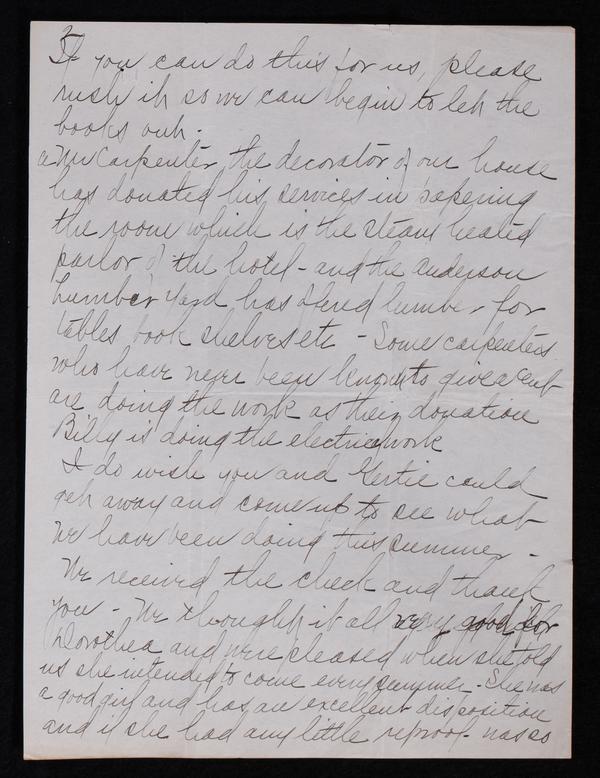 3
If you can do this for us, please
rush it so we can begin to let the
books out.
a Mr Carpenter, the decorator of our house
has donated his services in papering
the room which is the steam heated
parlor of the hotel - and the Anderson
Lumber Yard has offered lumber for
tables book shelves etc - Some carpenters
who have never been known to give a cent
are doing the work as their donation
Billy is doing the electric work
I do wish you and Gertie could
get away and come up to see what
we have been doing this summer -
We received the check and thank
you - We thought it all very good for
Dorothea and were pleased when she told
us she intended to come every summer. She was
a good girl and has an excellent disposition
and if she had any little reproof was so